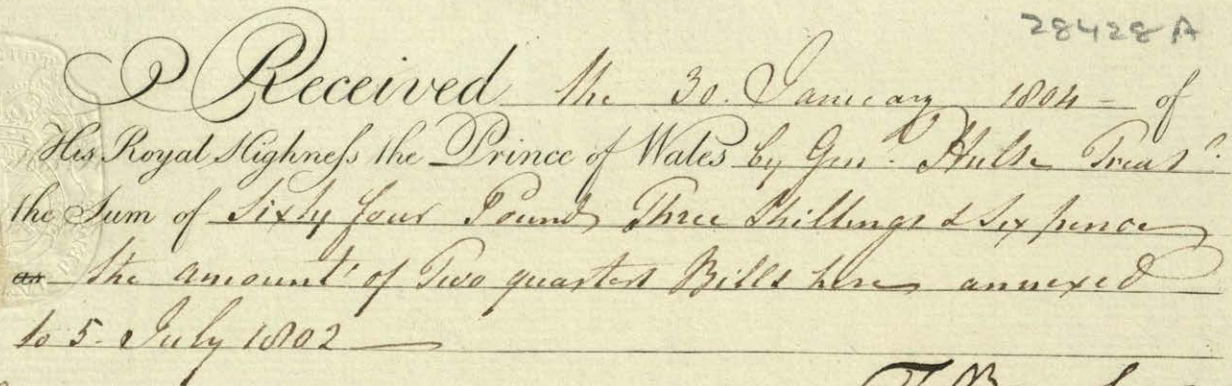 28428A
Received the 30. January 1804 = of
His Royal Highneſs the Prince of Wales by Genl. Hulse Treasr.
the Sum of Sixty four Pounds Three Shillings & Six pence
as the amount of Two quarters Bills here annexed
to 5. July 1802